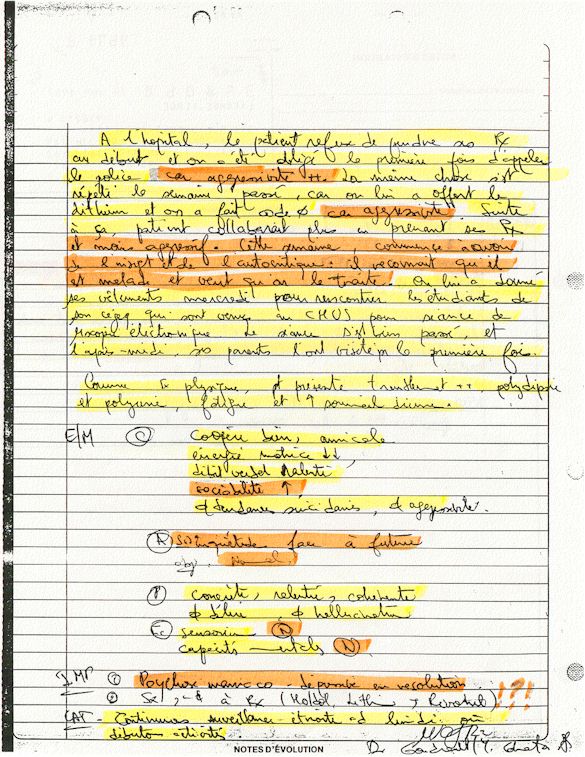 A l'hôpital, le patient refuse de prendre ses Rx
au début et on a été obligé la première fois d'appeler
la police car aggressivité ++. La même chose s'est
répété la semaine passé, car on lui a offert le
lithium et on a fait code car aggressivité. Suite
à ça, patient collaborait plus en prenant ses Rx
et moins aggressif. Cette semaine commence à avoir
de l'insight et de l'autocritique: il reconnait qu'il
est malade et veut qu'on le traite. On lui a donné
ses vêtements mercredi pour rencontrer les étudiants de
son cégep qui sont venus au CHUS pour séance de
microscopie électronique. La séance s'est bien passé, et
l'après-midi, ses parents l'ont visité pr la première fois.
Comme physique, pt présente tremblement ++, polydipsie
et polyurie, fatigue et ↑ sommeil diurne.
E/M C Coopère bien, amicale
énergie motrice ↓↓
débit verbal ralenti
sociabilité ↑
∅ tendances suicidaires, ∅ aggressivité.
A Sj: inquiétude face à future
obj: normal.
P concrète, ralentie, cohérente
∅ délire, ∅ hallucination
Ec sensorium N
capacités mentales N
IMP Psychose maniaco-dépressive en résolution
à Rx (Haldol, Lithium !?!
CAT - Continuons surveillance étroite
débutons activités
Dr
NOTES D'ÉVOLUTION